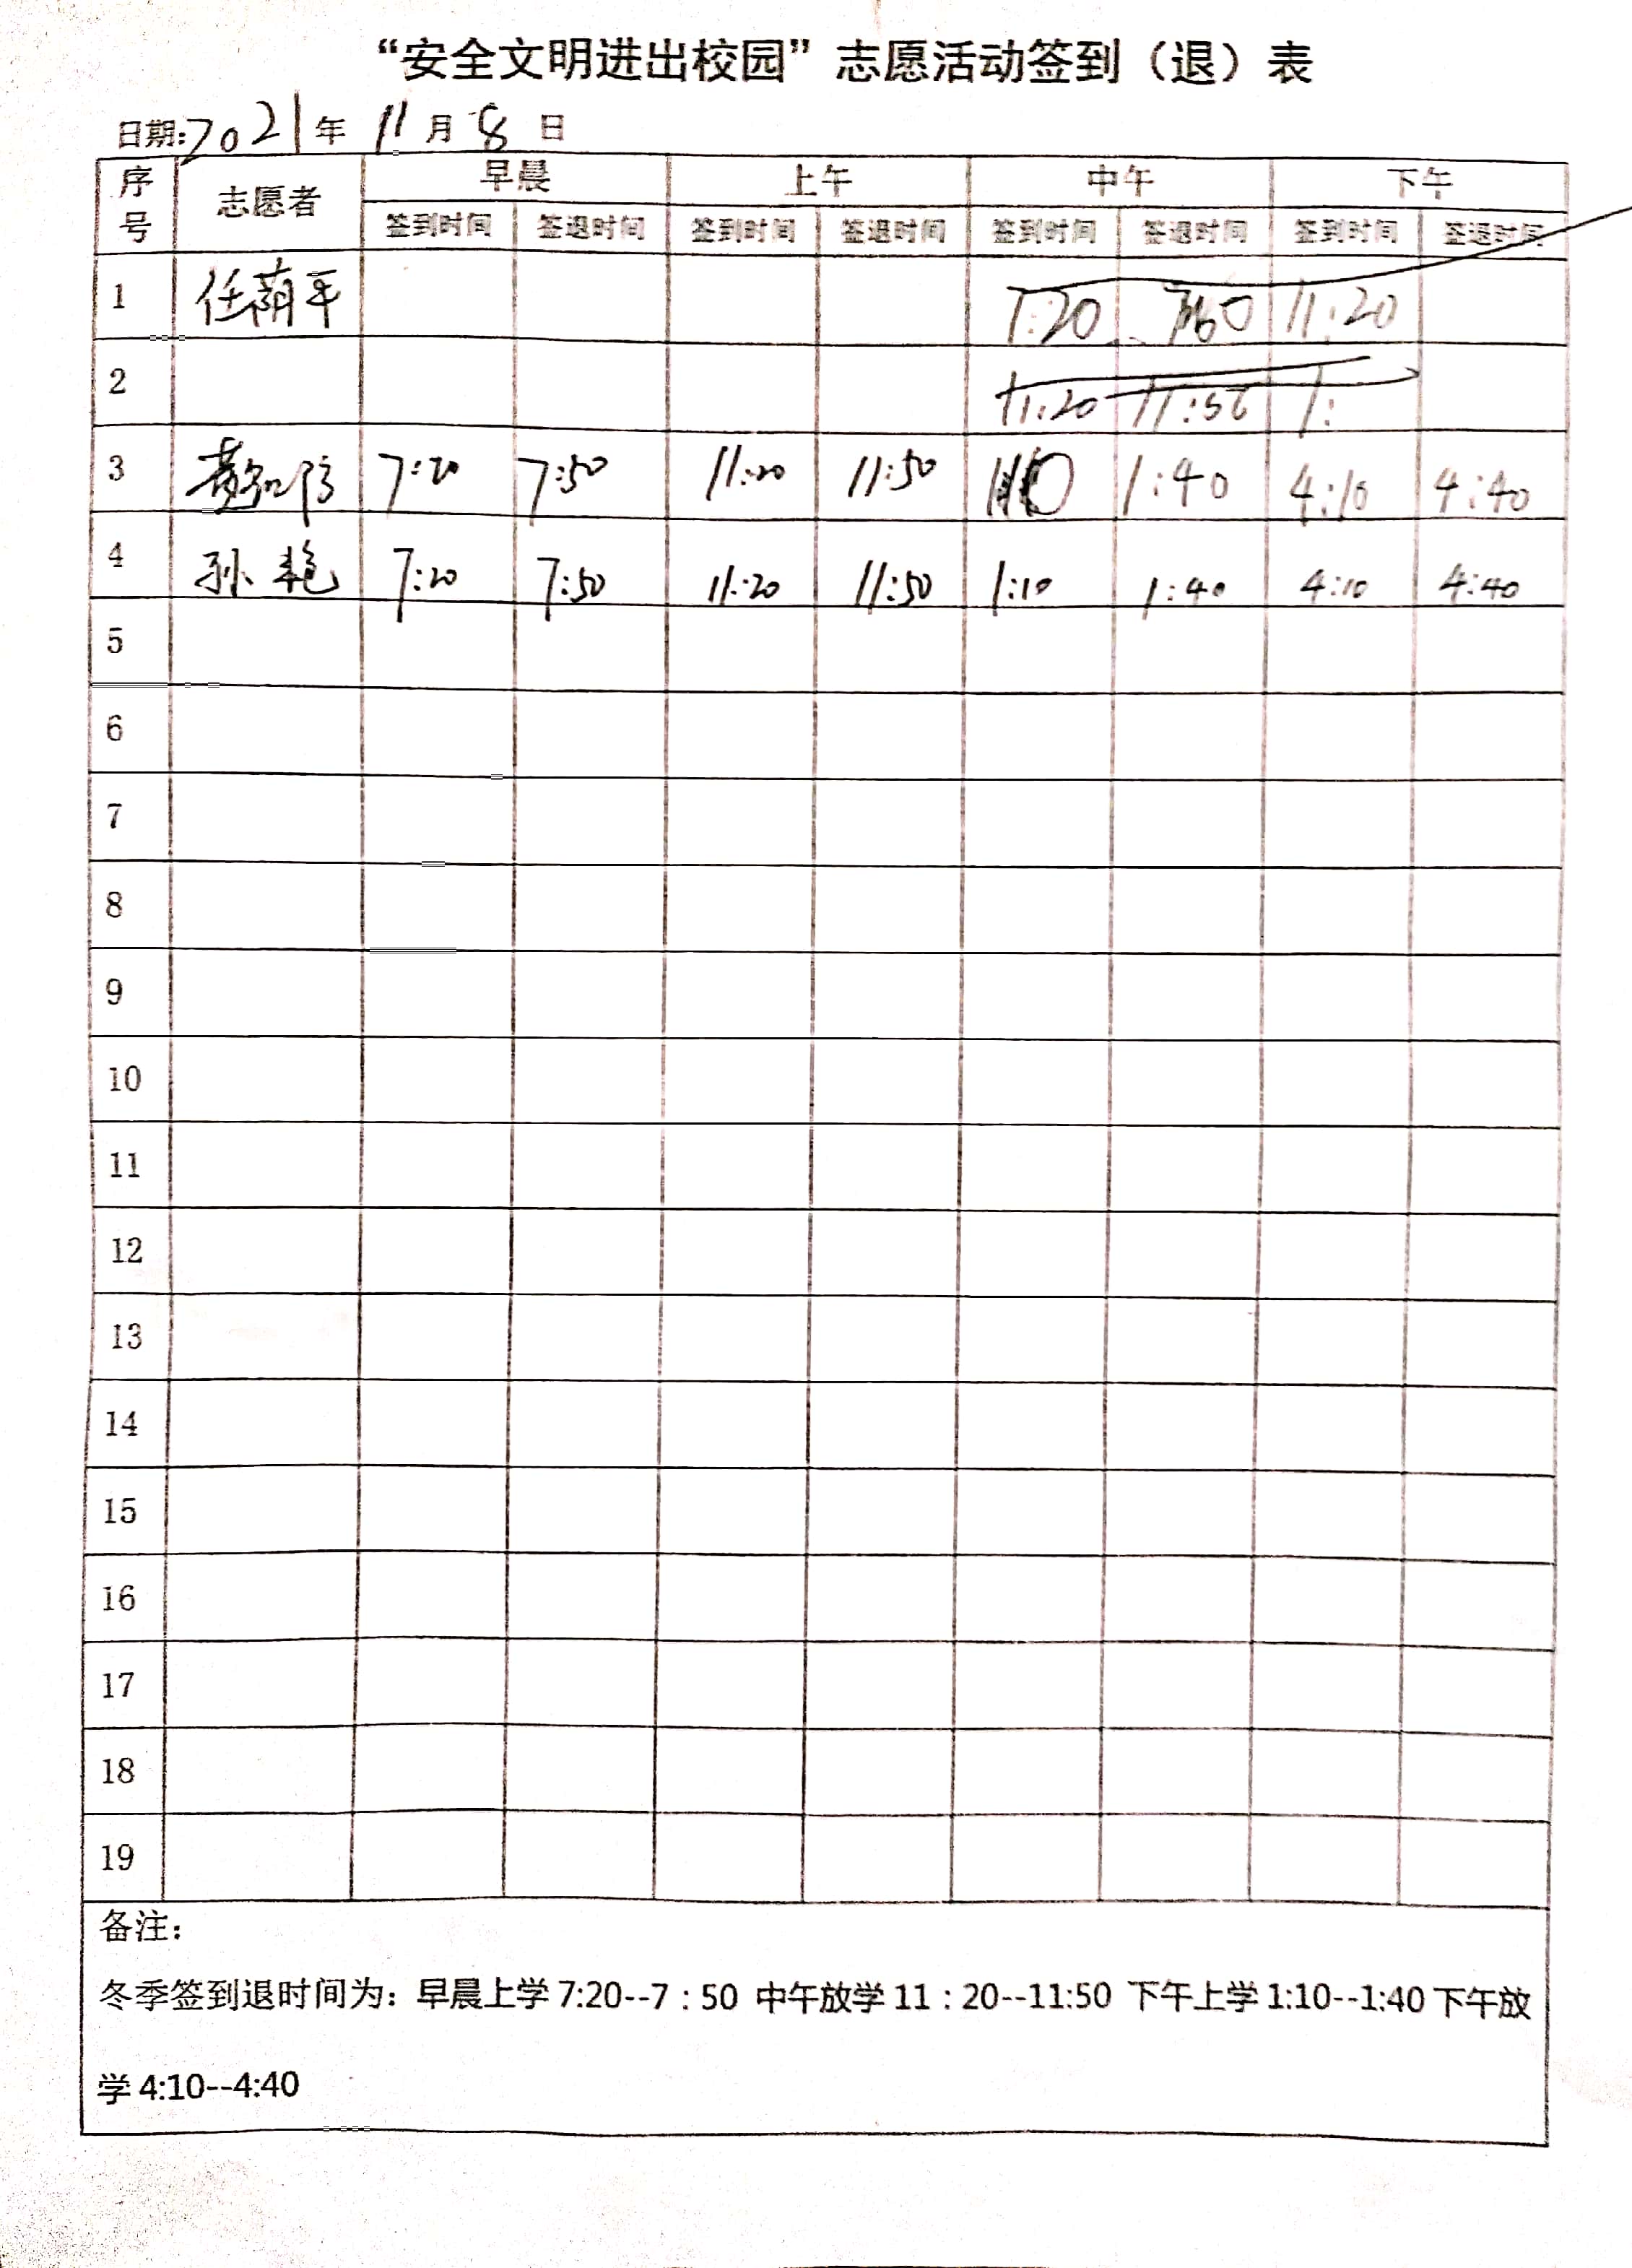 “安全文明进出校园”志愿活动签到（退）表
日期:2021年 11月 8日
序号 志愿者 早晨 上午 中午 下午
签到时间 签退时间 签到时间 签退时间 签到时间 签退时间 签到时间 签退时间
1 任荫平 7:20 11:20
2 11:20 11:50 1:
3 7:20 7:50 11:20 11:50 1:40 4:10 4:40
4 孙艳 7:20 7:50 11:20 11:50 1:10 1:40 4:10 4:40
5
6
7
8
9
10
11
12
13
14
15
16
17
18
19
备注：
冬季签到退时间为：早晨上学 7:20--7：50 中午放学 11：20--11:50 下午上学 1:10--1:40 下午放
学 4:10--4:40